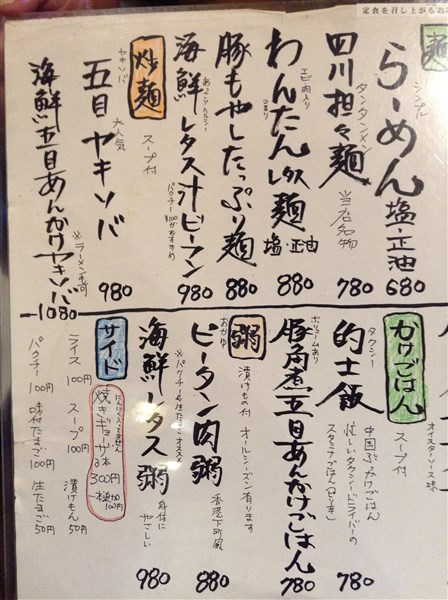 定食を召し上がるお
麺
シンプル
らーめん 塩・正油 680
タンタンメン
四川担々麺 当店名物 780
エビ肉入り
わんたん麺 塩・正油 880
豚もやしたっぷり麺 880
あっさりヘルシー
海鮮レタス汁ビーフン 980
パクチー¥100がおすすめ
炒麺 スープ付
ヤキソバ
五目ヤキソバ 980
大人気
海鮮五目あんかけヤキソバ 1080
※ラーメン可
かけごはん スープ付
オイスターソース味
タクシー
的士飯 780
中国ぶっかけごはん
忙しいタクシードライバーの
スタミナごはん
ボリュームあり
豚角煮五目あんかけごはん 780
粥 漬けもの付 オールシーズン有ります
おかゆ
ピータン肉粥 香港下町風 880
※パクチー&生たまごオススメ
海鮮レタス粥 身体にやさしい 980
サイド
にんにく入ってません
焼きギョーザ 3本 300円
一本追加 100円
ライス 100円
スープ 100円
漬けもん 50円
パクチー 100円
味付たまご 100円
生たまご 50円